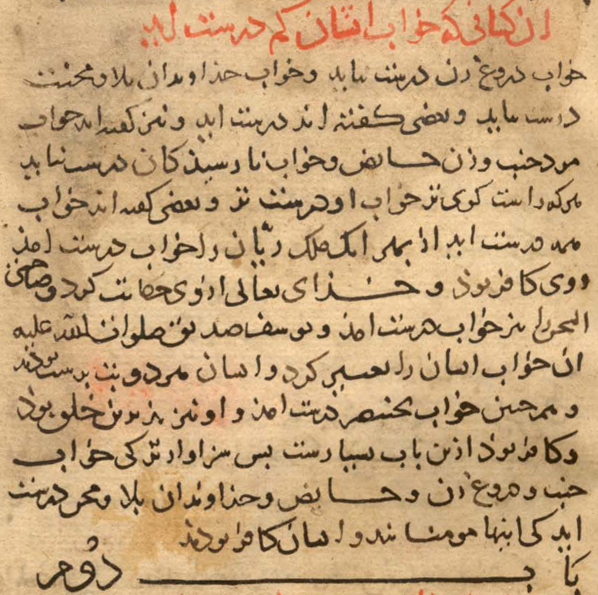 ان کسانی که خواب ایشان کم درست اید
خواب دروغ زن درست نیاید و خواب خداوندان بلا و محنت
درست نیاید و بعضی گفته اند درست اید و نیز گفته اند خواب
مرد جنب و زن حایض و خواب نارسیذکان درست نیاید
هرکه راست کوی تر خواب او درست تر و بعضی گفته اند خواب
همه درست اید از بهر انک ملک ریان را خواب درست امذ
و وی کافر بوذ و خذای تعالی از وی حکایت کرد و صاحبی
السجن را نیز خواب درست امذ و یوسف صدیق صلوات الله علیه
ان خواب ایشان را تعبیر کرد و ایشان هردو بت پرست بودند
و همچنین خواب بختنصر درست امذ و او نیز بترین خلق بوذ
و کافر بوذ ازین باب بسیارست پس سزاوارتر کی خواب
جنب و دروغ زن و حایض و خذاوندان بلا و محن درست
اید کی اینها مومنانند و ایشان کافر بودند
باب دوم